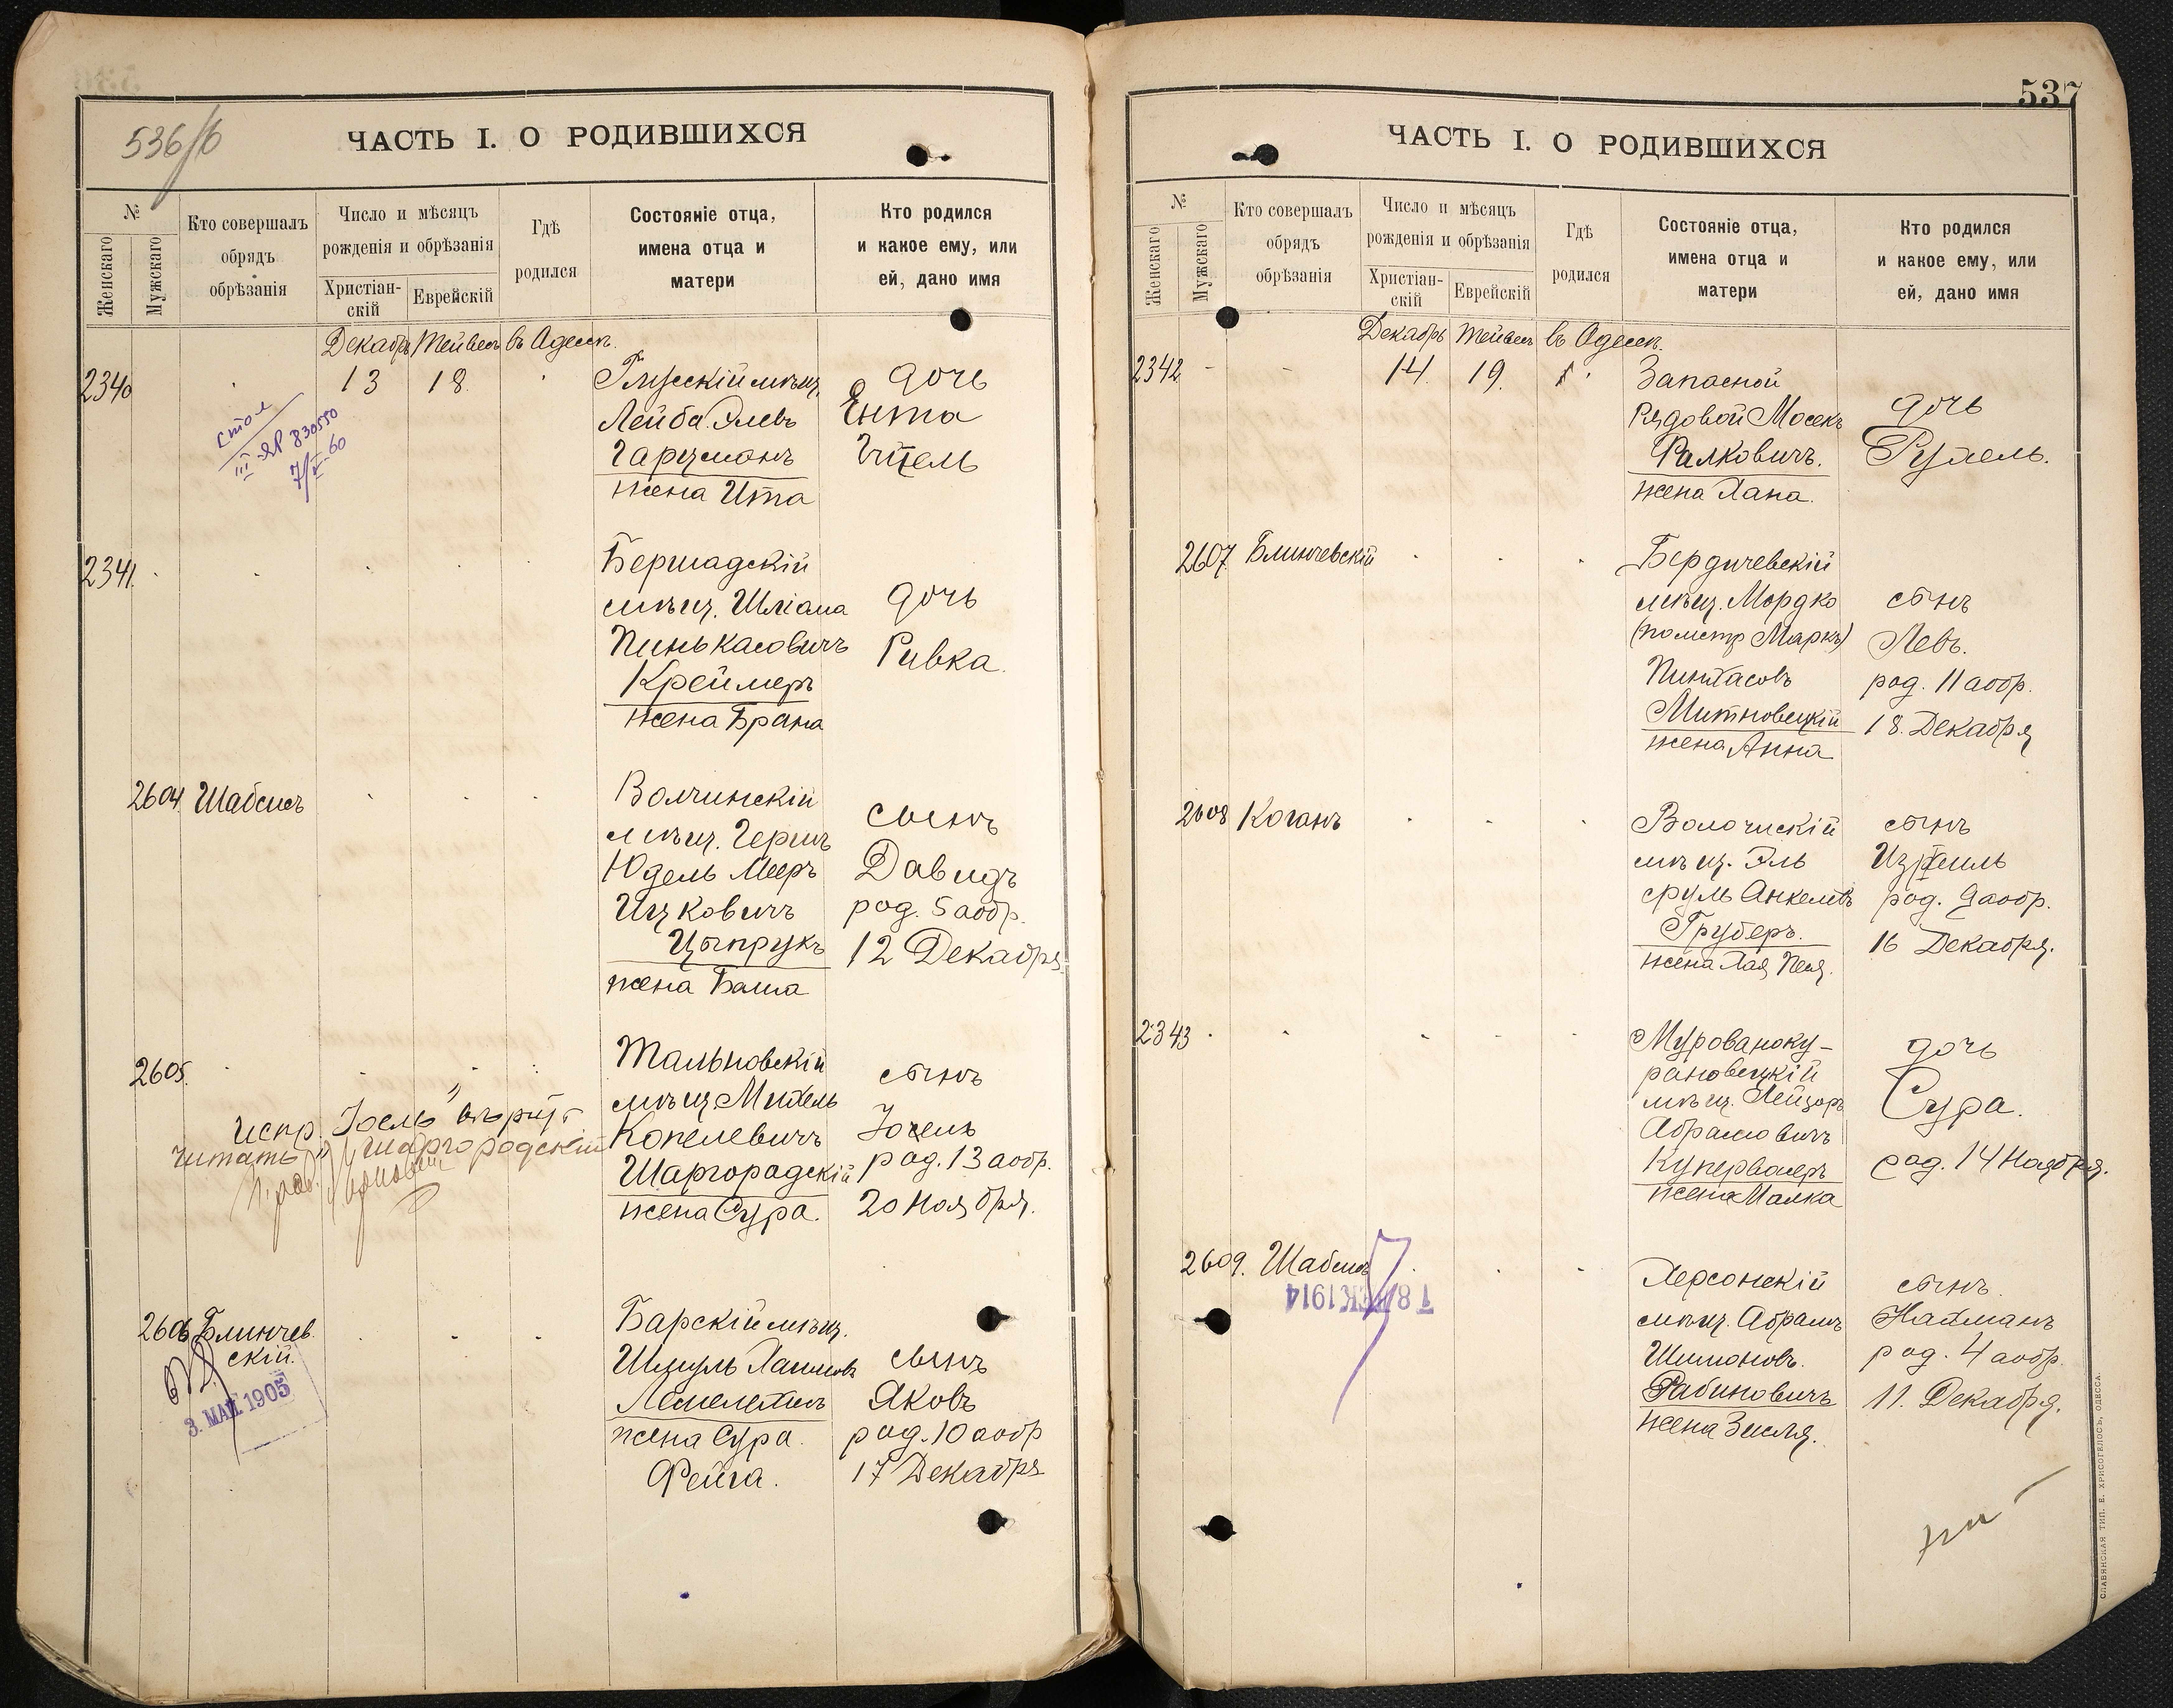 536/б
ЧАСТЬ I. О РОДИВШИХСЯ
№
Женскаго
Мужскаго
Кто совершалъ
обрядъ
обрѣзанія
Число и мѣсяцъ
рожденія и обрѣзанія
Христіан-
скій
Еврейскій
Гдѣ
родился
Состояніе отца,
имена отца и
матери
Кто родился
и какое ему, или
ей, дано имя
Декабрь Тейвесъ въ Одессѣ.
2340 13 18.
Глусскій мѣщ.
Лейба Элевъ
Гарцманъ
жена Ита
дочь
Ента
Гитель
стол
III ЯР 830550
7/V-60
2341.
Бершадскій
мѣщ. Шліома
Пинькасовичъ
Креймеръ
жена Брана
дочь
Ривка.
2604. Шабсисъ
Волчинскій
мѣщ. Гершъ
Юдель Мееръ
Ицковичъ
Цыпрукъ
жена Баша
сынъ
Давидъ
род. 5 а обр.
12 Декабря
2605.
Тальновскій
мѣщ Михель
Копелевичъ
Шаргородскій
жена Сура.
сынъ
Іосель
род. 13 а обр.
20 Ноября.
испр. Іосель
читать Шаргородскій
2606 Блинчев.
скій.
3. МАЙ 1905
Барскій мѣщ.
Шмуль Хаимовъ
жена Сура.
Фейга.
сынъ
Яковъ
род. 10 а обр
17 Декабря
537
ЧАСТЬ I. О РОДИВШИХСЯ
№
Женскаго
Мужскаго
Кто совершалъ
обрядъ
обрѣзанія
Число и мѣсяцъ
рожденія и обрѣзанія
Христіан-
скій
Еврейскій
Гдѣ
родился
Состояніе отца,
имена отца и
матери
Кто родился
и какое ему, или
ей, дано имя
Декабрь Тейвесъ въ Одессѣ.
2342 - - 14. 19.
Запасной
рядовой Мосекъ
Фалковичъ.
жена Хана.
дочь
Рухель.
2607. Блинчевскій
Бердичевскій
мѣщ. Мордко
(по метр Маркъ)
Пинхасовъ
Митновецкій
жена Анна
сынъ
Левъ.
род. 11 а обр.
18. Декабря
2608 Коганъ
Волочискій
мѣщ. Эль
сруль Анкелевъ
Груберъ.
жена Хая Песя.
сынъ
Израиль
род. 9 а обр.
16 Декабря.
2343
Мурованоку-
рановецкій
мѣщ. Лейзоръ
Абрамовичъ
Купервасеръ
жена Малка
дочь
Сура.
род. 14 Ноября.
2609. Шабсисъ
18 ДЕК 1914
Херсонскій
мѣщ. Абрамъ
Шимоновъ.
Рабиновичъ
жена Зисля.
сынъ.
Нахманъ
род. 4 а обр.
11. Декабря.
СЛАВЯНСКАЯ ТИП. Е. ХРИСОГЕЛОСЪ, ОДЕССА.